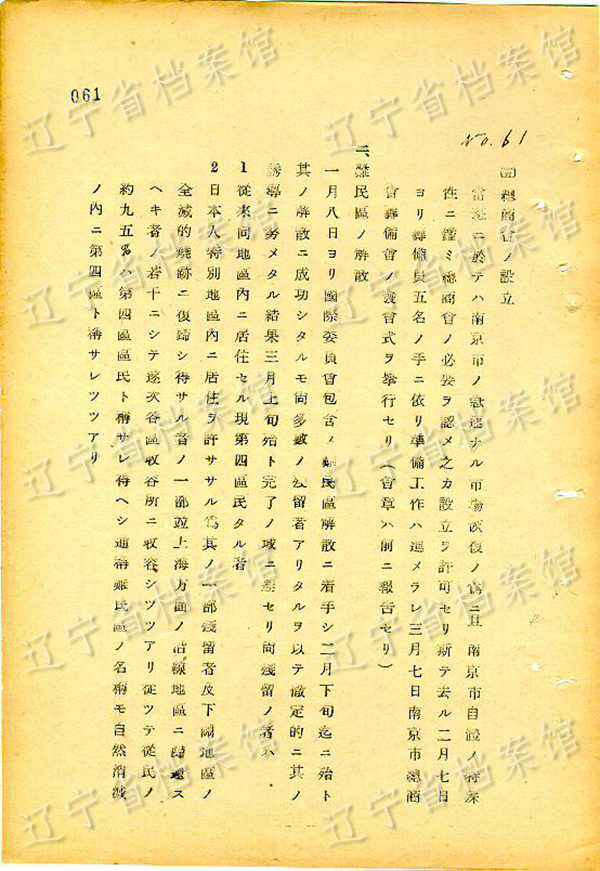 061
No. 61
總商會ノ設立
當班ニ於テハ南京市ノ急速ナル市場恢復ノ爲ニ且南京市自治ノ將來
在ニ鑑ミ總商會ノ必要ヲ認メ之カ設立ヲ許可セリ斯テ去ル二月七日
ヨリ籌備員五名ノ手ニ依リ準備工作ハ進メラレ三月七日南京市總商
會籌備會ノ發會式ヲ擧行セリ(會章ハ前ニ報告セリ)
二、難民區ノ解散
一月八日ヨリ國際委員會包含ノ難民區解散ニ着手シ二月下旬迄ニ殆ト
其ノ解散ニ成功シタルモ尚多數ノ殘留者アリタルヲ以テ徹定的ニ其ノ
誘導ニ努メタル結果三月上旬殆ト完了ノ域ニ達セリ尚殘留ノ者ハ
1 從來同地區內ニ居住セル現第四區民タル者
2 日本人特別地區內ニ居住ヲ許ササル爲其ノ一部殘留者及下關地區ノ
全滅的燒跡ニ復歸シ得サル者ノ一部竝上海方面ノ沿線地區ニ歸還ス
ヘキ者ノ若干ニシテ逐次各區收容所ニ收容シツツアリ從ツテ從民ノ
約九五%ハ第四區區民ト稱サレ得ヘシ通稱難民區ノ名稱モ自然消滅
ノ內ニ第四區ト稱サレツツアリ
辽宁省档案馆
辽宁省档案馆
辽宁省档案馆
辽宁省档案馆
辽宁省档案馆
辽宁省档案馆
辽宁省档案馆
辽宁省档案馆